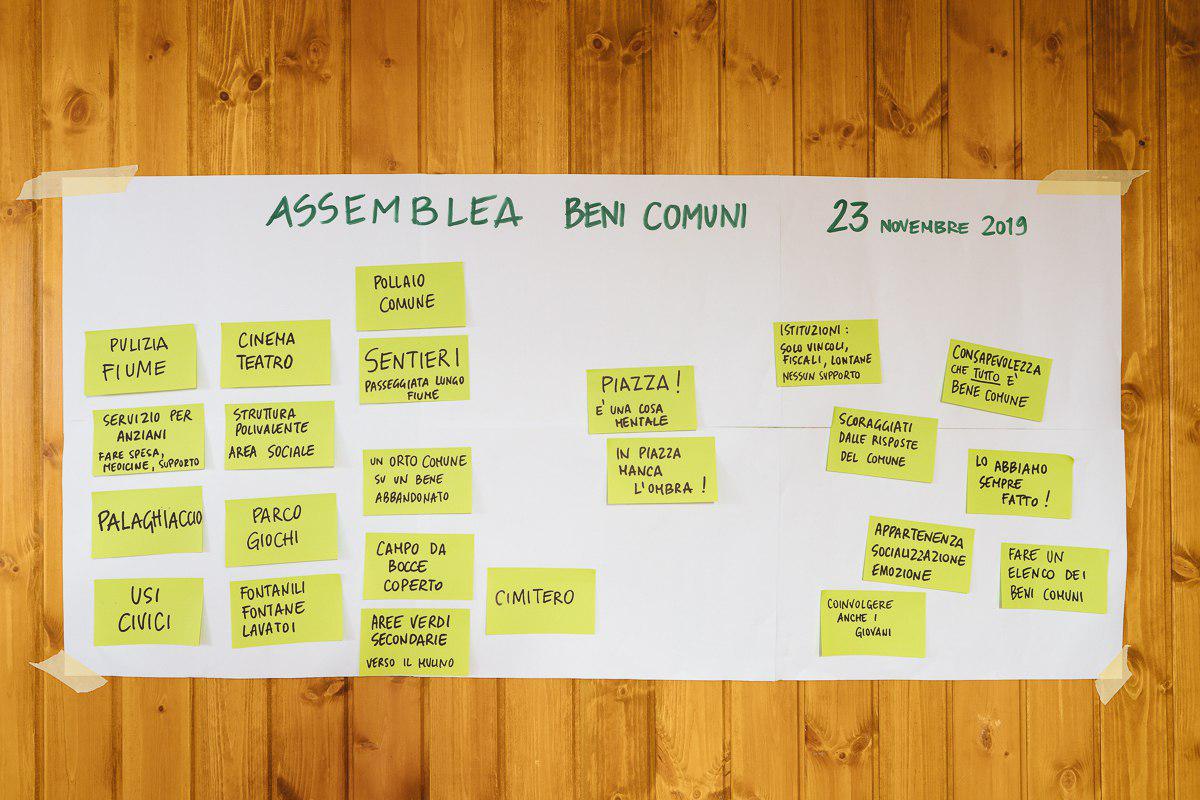 ASSEMBLEA BENI COMUNI 23 NOVEMBRE 2019
PULIZIA
FIUME
SERVIZIO PER
ANZIANI
FARE SPESA,
MEDICINE, SUPPORTO
PALAGHIACCIO
USI
CIVICI
CINEMA
TEATRO
STRUTTURA
POLIVALENTE
AREA SOCIALE
PARCO
GIOCHI
FONTANILI
FONTANE
LAVATOI
POLLAIO
COMUNE
SENTIERI
PASSEGGIATA LUNGO
FIUME
UN ORTO COMUNE
SU UN BENE
ABBANDONATO
CAMPO DA
BOCCE
COPERTO
AREE VERDI
SECONDARIE
VERSO IL MULINO
CIMITERO
PIAZZA!
E' UNA COSA
MENTALE
IN PIAZZA
MANCA
L'OMBRA!
ISTITUZIONI:
SOLO VINCOLI,
FISCALI, LONTANE
NESSUN SUPPORTO
SCORAGGIATI
DALLE RISPOSTE
DEL COMUNE
APPARTENENZA
SOCIALIZZAZIONE
EMOZIONE
COINVOLGERE
ANCHE I
GIOVANI
CONSAPEVOLEZZA
CHE TUTTO E'
BENE COMUNE
LO ABBIAMO
SEMPRE
FATTO!
FARE UN
ELENCO DEI
BENI COMUNI